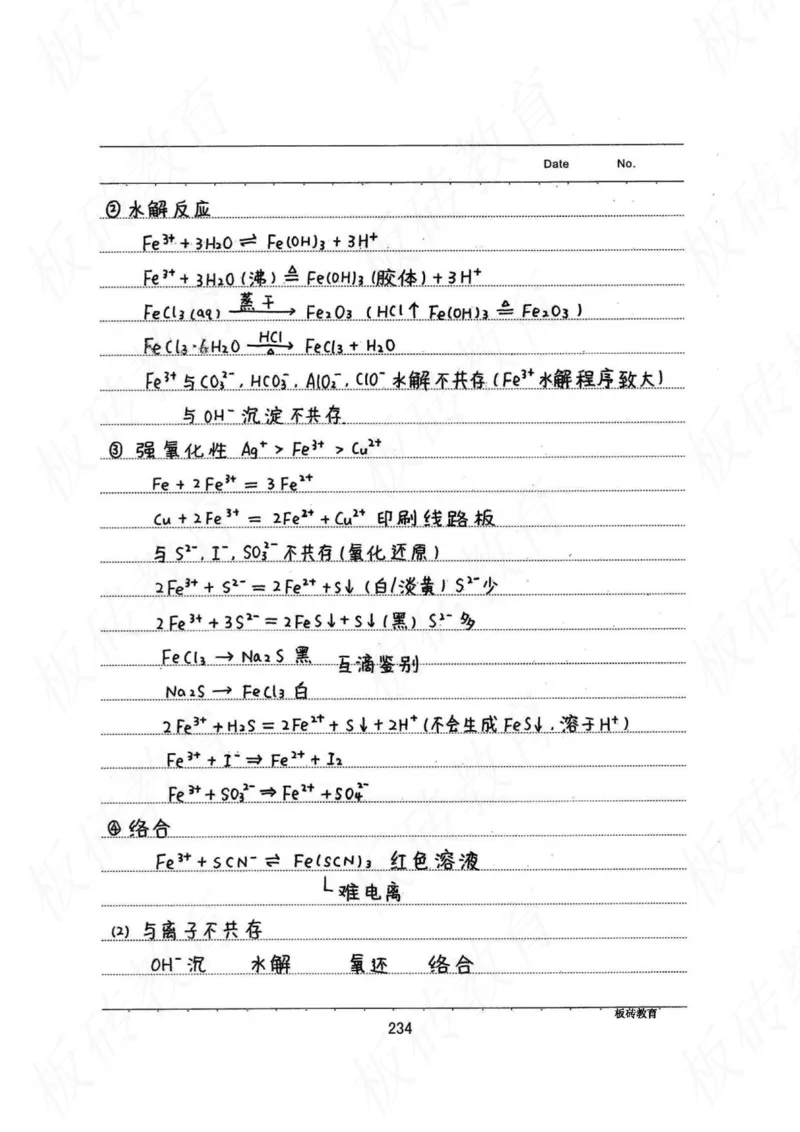 Date No.
② 水解反应
Fe³⁺ + 3H₂O ⇌ Fe(OH)₃ + 3H⁺
Fe³⁺ + 3H₂O (沸) ≜ Fe(OH)₃ (胶体) + 3H⁺
FeCl₃(aq) —蒸干→ Fe₂O₃ (HCl↑ Fe(OH)₃ ≜ Fe₂O₃)
FeCl₃·6H₂O —HCl/△→ FeCl₃ + H₂O
Fe³⁺ 与 CO₃²⁻, HCO₃⁻, AlO₂⁻, ClO⁻ 水解不共存 (Fe³⁺水解程序致大)
与 OH⁻ 沉淀不共存
③ 强氧化性 Ag⁺ > Fe³⁺ > Cu²⁺
Fe + 2Fe³⁺ = 3Fe²⁺
Cu + 2Fe³⁺ = 2Fe²⁺ + Cu²⁺ 印刷线路板
与 S²⁻, I⁻, SO₃²⁻ 不共存 (氧化还原)
2Fe³⁺ + S²⁻ = 2Fe²⁺ + S↓ (白/淡黄) S²⁻少
2Fe³⁺ + 3S²⁻ = 2FeS↓ + S↓ (黑) S²⁻多
FeCl₃ → Na₂S 黑 互滴鉴别
Na₂S → FeCl₃ 白
2Fe³⁺ + H₂S = 2Fe²⁺ + S↓ + 2H⁺ (不会生成 FeS↓, 溶于H⁺)
Fe³⁺ + I⁻ ⇒ Fe²⁺ + I₂
Fe³⁺ + SO₃²⁻ ⇒ Fe²⁺ + SO₄²⁻
④ 络合
Fe³⁺ + SCN⁻ ⇌ Fe(SCN)₃ 红色溶液
└ 难电离
(2) 与离子不共存
OH⁻沉 水解 氧还 络合
板砖教育
234